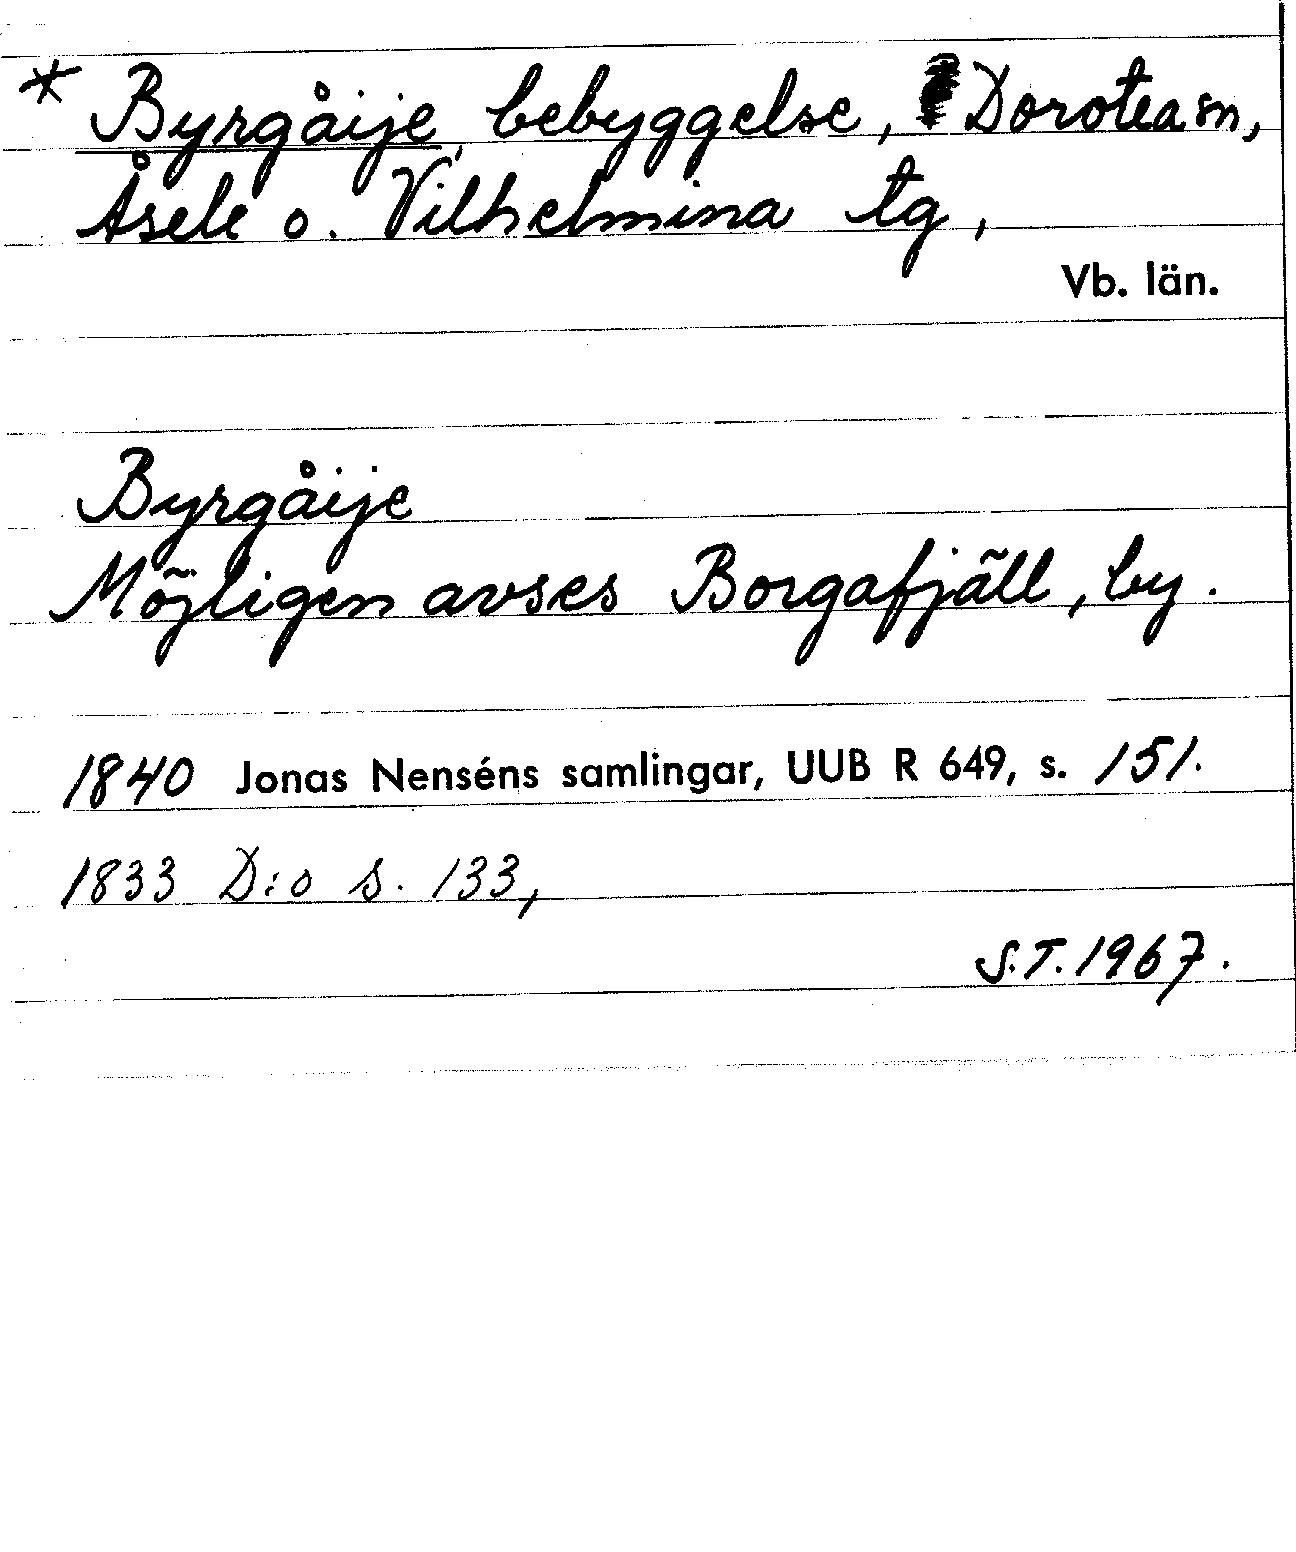 * Byrgåije, bebyggelse, Dorotea sn,
Åsele o. Vilhelmina tg,
Vb. län.
Byrgåije
Möjligen avses Borgafjäll, by.
1840 Jonas Nenséns samlingar, UUB R 649, s. 151.
1833 D:o s. 133,
S.T. 1967.